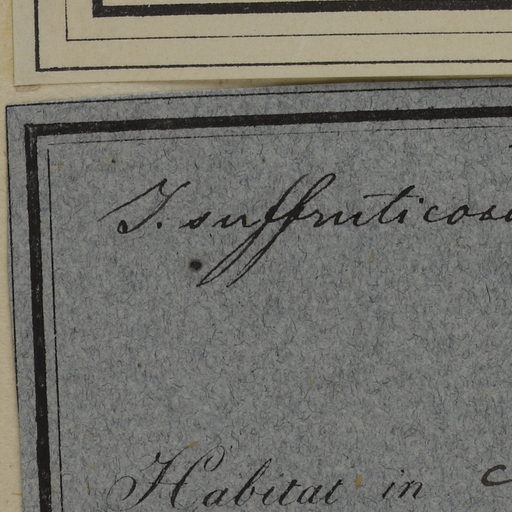 I. suffruticosa
Habitat in c